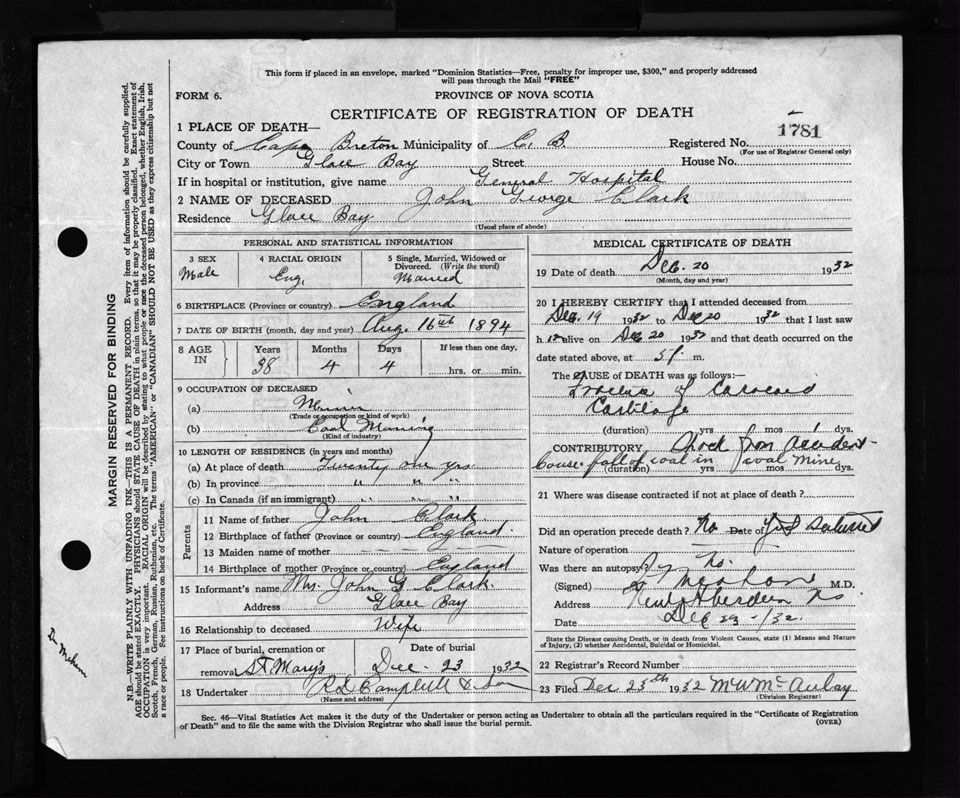 This form if placed in an envelope, marked "Dominion Statistics—Free, penalty for improper use, $300," and properly addressed
will pass through the Mail "FREE"
FORM 6.
PROVINCE OF NOVA SCOTIA
CERTIFICATE OF REGISTRATION OF DEATH
1781
1 PLACE OF DEATH—
County of Cape Breton Municipality of C. B. Registered No.
(For use of Registrar General only)
City or Town Glace Bay Street House No.
If in hospital or institution, give name General Hospital
2 NAME OF DECEASED John George Clark
Residence Glace Bay
(Usual place of abode)
PERSONAL AND STATISTICAL INFORMATION
3 SEX Male
4 RACIAL ORIGIN Eng.
5 Single, Married, Widowed or Divorced. (Write the word) Married
6 BIRTHPLACE (Province or country) England
7 DATE OF BIRTH (month, day and year) Aug. 16th 1894
8 AGE IN
Years Months Days If less than one day,
38 4 4 hrs. or min.
9 OCCUPATION OF DECEASED
(a)
(Trade or occupation or kind of work)
(b) Coal Mining
(Kind of industry)
10 LENGTH OF RESIDENCE (in years and months)
(a) At place of death Twenty one yrs
(b) In province " " "
(c) In Canada (if an immigrant) " " "
Parents
11 Name of father John Clark
12 Birthplace of father (Province or country) England
13 Maiden name of mother — — —
14 Birthplace of mother (Province or country) England
15 Informant's name Mrs. John G Clark.
Address Glace Bay
16 Relationship to deceased Wife
17 Place of burial, cremation or removal St. Mary's
Date of burial Dec - 23 1932
18 Undertaker R L Campbell & Son
(Name and address)
MEDICAL CERTIFICATE OF DEATH
19 Date of death Dec. 20 1932
(Month, day and year)
20 I HEREBY CERTIFY that I attended deceased from
Dec. 19 1932 to Dec 20 1932 that I last saw
h im alive on Dec 20 1932 and that death occurred on the
date stated above, at m.
The CAUSE OF DEATH was as follows:—
of
Cartilage
(duration) yrs mos dys.
CONTRIBUTORY Shock from Accident
Cause fall of coal in coal mine
(duration) yrs mos dys.
21 Where was disease contracted if not at place of death?
Did an operation precede death? No Date of
Nature of operation
Was there an autopsy? No.
(Signed) M.D.
Address New Aberdeen N.S.
Date Dec 23 -/32.
State the Disease causing Death, or in death from Violent Causes, state (1) Means and Nature
of Injury, (2) whether Accidental, Suicidal or Homicidal.
22 Registrar's Record Number
23 Filed Dec 23th 1932 M W McAulay
(Division Registrar)
Sec. 46—Vital Statistics Act makes it the duty of the Undertaker or person acting as Undertaker to obtain all the particulars required in the "Certificate of Registration
of Death" and to file the same with the Division Registrar who shall issue the burial permit.
(OVER)
MARGIN RESERVED FOR BINDING
N.B.—WRITE PLAINLY WITH UNFADING INK—THIS IS A PERMANENT RECORD. Every item of information should be carefully supplied.
AGE should be stated EXACTLY. PHYSICIANS should STATE CAUSE OF DEATH in plain terms, so that it may be properly classified. Exact statement of
OCCUPATION is very important. RACIAL ORIGIN will be described by stating to what people or race the deceased person belonged, whether English, Irish,
Scotch, French, German, Russian, Ruthenian, etc. The terms "AMERICAN" or "CANADIAN" SHOULD NOT BE USED as they express citizenship but not
a race or people. See instructions on back of Certificate.